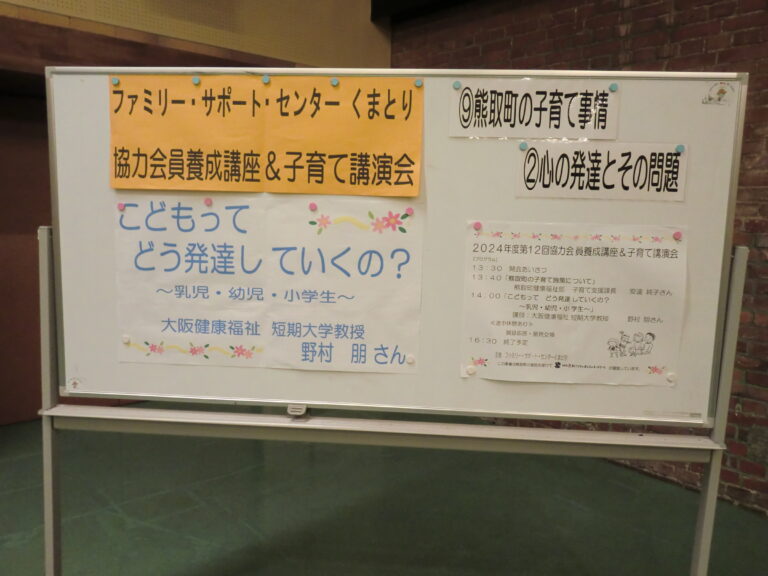 ファミリー・サポート・センター くまとり
協力会員養成講座＆子育て講演会
こどもって
どう発達していくの？
～乳児・幼児・小学生～
大阪健康福祉 短期大学教授
野村 朋 さん
⑨熊取町の子育て事情
②心の発達とその問題
2024年度第12回協力会員養成講座＆子育て講演会
【プログラム】
13:30 開会あいさつ
13:40「熊取町の子育て施策について」
熊取町健康福祉部 子育て支援課長 安達 純子さん
14:00「こどもって どう発達していくの？
～乳児・幼児・小学生～
講師：大阪健康福祉 短期大学教授 野村 朋さん
16:30 終了予定